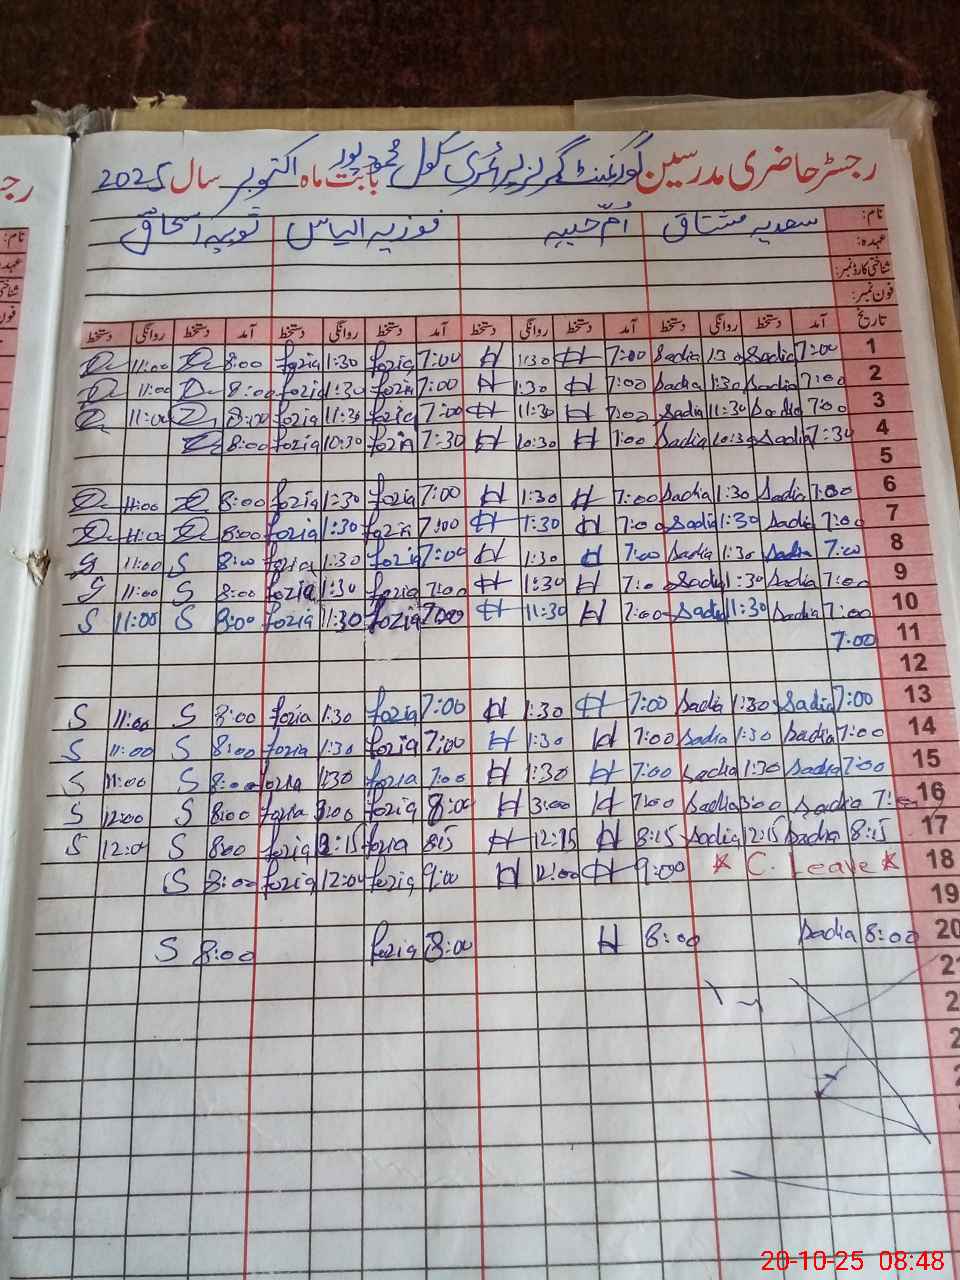 رجسٹر حاضری مدرسین گورنمنٹ گرلز پرائمری سکول محمود پور بابت ماہ اکتوبر سال 2025
نام: سعدیہ مشتاق اُمِّ حبیبہ فوزیہ الیاس ثوبیہ اسحاق
عہدہ:
شناختی کارڈ نمبر:
فون نمبر:
تاریخ آمد دستخط روانگی دستخط آمد دستخط روانگی دستخط آمد دستخط روانگی دستخط آمد دستخط روانگی دستخط
1 7:00 Sadia 1:30 Sadia 7:00 H 1:30 H 7:00 fozia 1:30 fozia 8:00 11:00
2 7:00 Sadia 1:30 Sadia 7:00 H 1:30 H 7:00 fozia 1:30 fozia 8:00 11:00
3 7:00 Sadia 11:30 Sadia 7:00 H 11:30 H 7:00 fozia 11:30 fozia 8:00 11:00
4 7:30 Sadia 10:30 Sadia 7:00 H 10:30 H 7:30 fozia 10:30 fozia 8:00
5
6 7:00 Sadia 1:30 Sadia 7:00 H 1:30 H 7:00 fozia 1:30 fozia 8:00 11:00
7 7:00 Sadia 1:30 Sadia 7:00 H 1:30 H 7:00 fozia 1:30 fozia 8:00 11:00
8 7:00 Sadia 1:30 Sadia 7:00 H 1:30 H 7:00 fozia 1:30 fozia 8:00 S 11:00
9 7:00 Sadia 1:30 Sadia 7:00 H 1:30 H 7:00 fozia 1:30 fozia 8:00 S 11:00
10 7:00 Sadia 11:30 Sadia 7:00 H 11:30 H 7:00 fozia 11:30 fozia 8:00 S 11:00 S
11 7:00
12
13 7:00 Sadia 1:30 Sadia 7:00 H 1:30 H 7:00 fozia 1:30 fozia 8:00 S 11:00 S
14 7:00 Sadia 1:30 Sadia 7:00 H 1:30 H 7:00 fozia 1:30 fozia 8:00 S 11:00 S
15 7:00 Sadia 1:30 Sadia 7:00 H 1:30 H 7:00 fozia 1:30 fozia 8:00 S 11:00 S
16 Sadia 3:00 Sadia 7:00 H 3:00 H 8:00 fozia 3:00 fozia 8:00 S 12:00 S
17 8:15 Sadia 12:15 Sadia 8:15 H 12:15 H 8:15 fozia fozia 8:00 S 12:00 S
18 * C. Leave * 9:00 H 12:00 H 9:00 fozia 12:00 fozia 8:00 S
19
20 8:00 Sadia 8:00 H 8:00 fozia 8:00 S
21
20-10-25 08:48